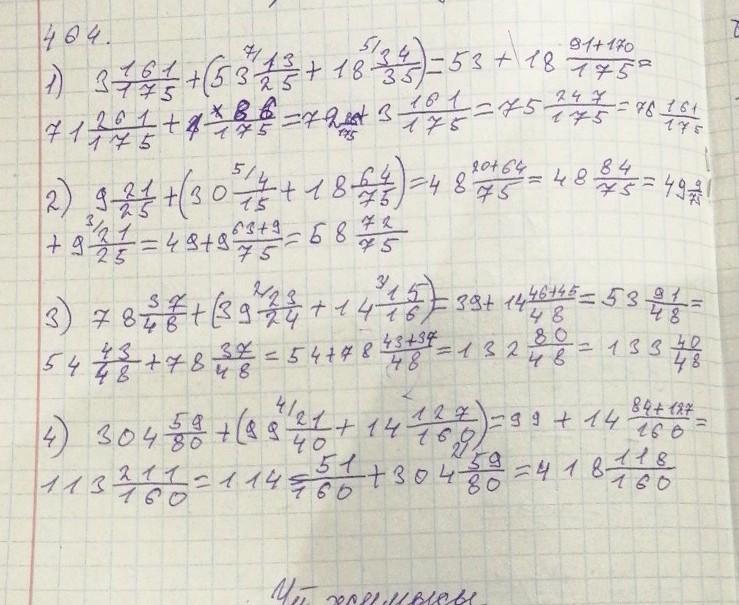 464.
1) 3 161/175 + (53 7/ 13/25 + 18 5/ 34/35) = 53 + 18 91+170/175 =
71 261/175 + 86/175 = 72 + 3 161/175 = 75 247/175 = 76 161/175
2) 9 21/25 + (30 5/ 4/15 + 18 64/75) = 48 20+64/75 = 48 84/75 = 49 9/75
+ 9 3/ 21/25 = 49 + 9 63+9/75 = 58 72/75
3) 78 37/48 + (39 2/ 23/24 + 14 3/ 15/16) = 39 + 14 46+45/48 = 53 91/48 =
54 43/48 + 78 37/48 = 54 + 78 43+37/48 = 132 80/48 = 133 40/48
4) 304 59/80 + (99 4/ 21/40 + 14 127/160) = 99 + 14 84+127/160 =
113 211/160 = 114 51/160 + 304 2/ 59/80 = 418 118/160
Үй